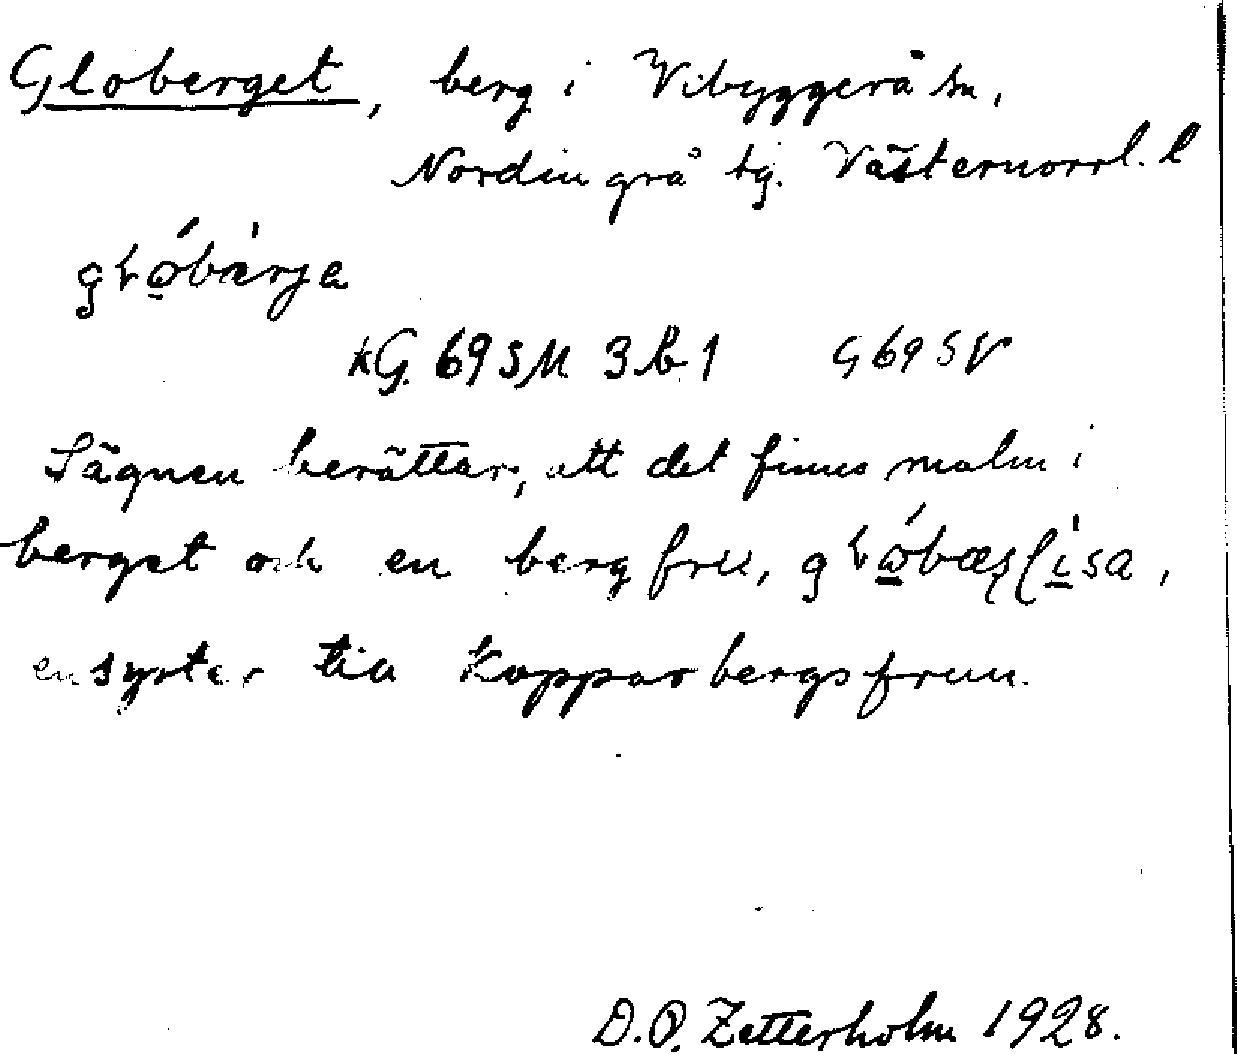 Globerget, berg i Vibyggerå sn,
Nordingrå tg. Västernorrl. l
gɫǫ́bàrja
kG. 69 SM 3 b 1 G 69 SV
Sägnen berättar, att det finns malm i
berget och en bergfru,
en syster till Kopparbergsfrun.
D.O. Zetterholm 1928.